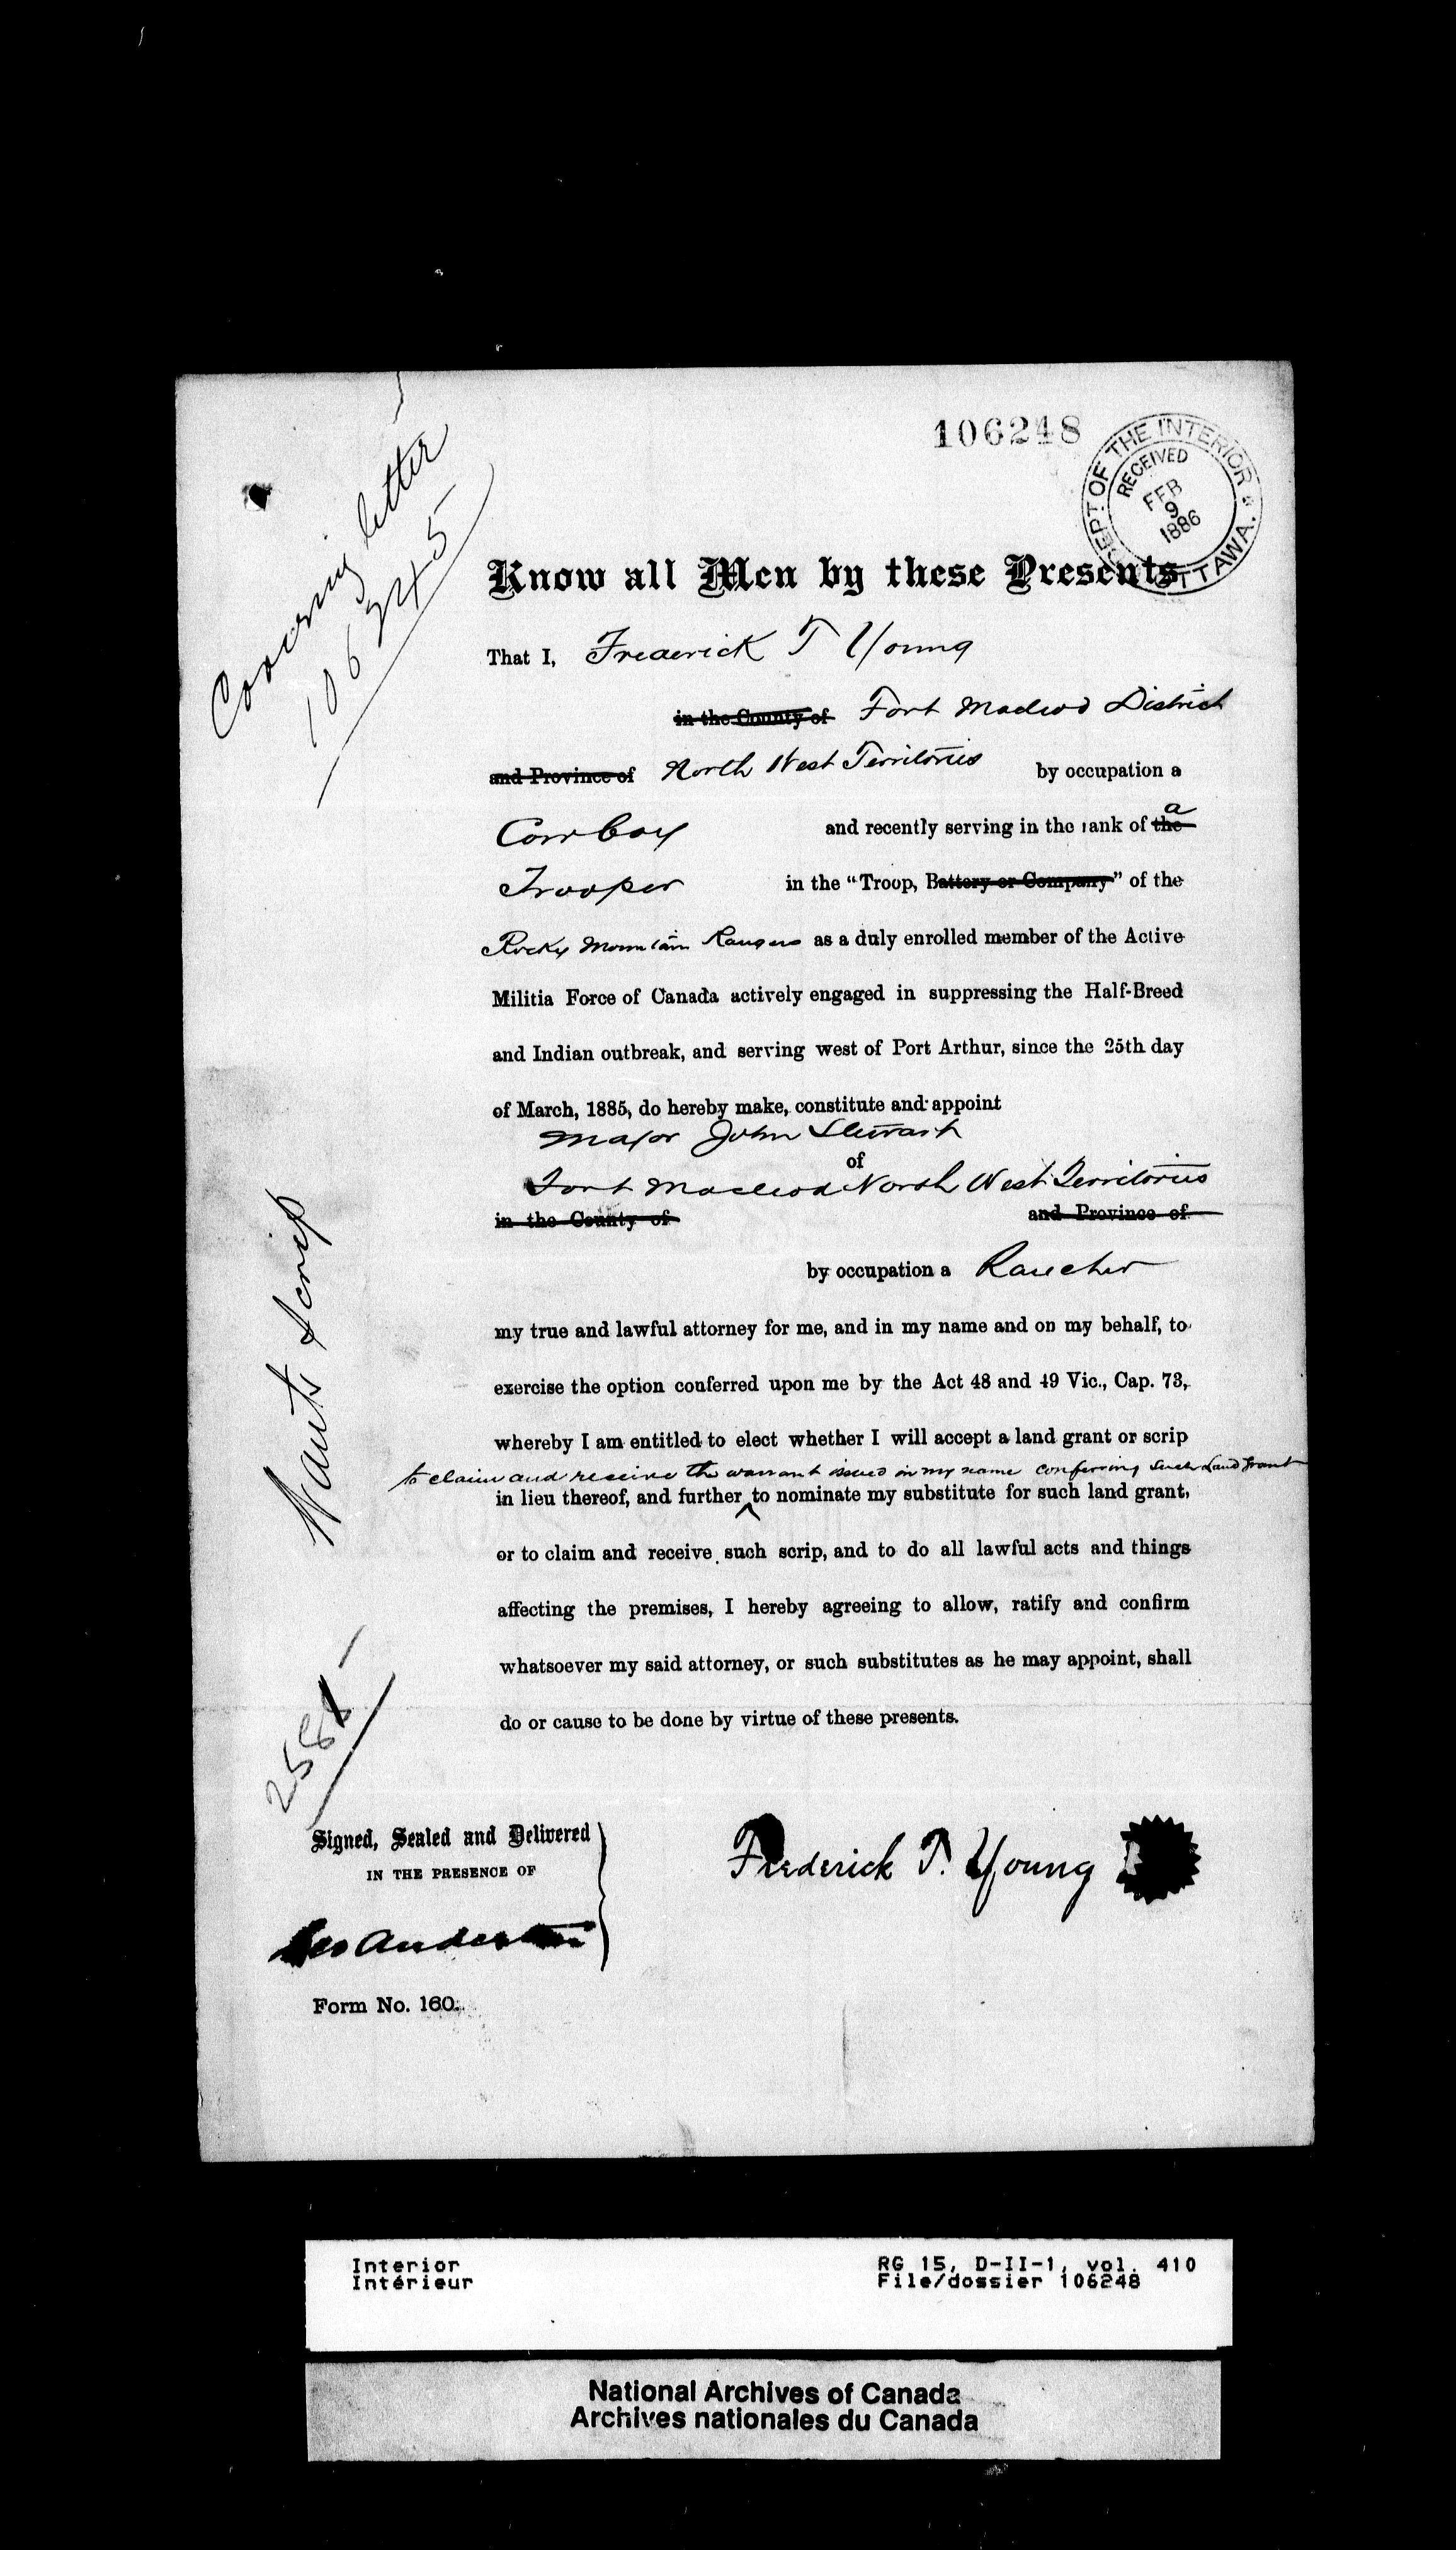 106248
DEPT OF THE INTERIOR
RECEIVED
FEB
9
1886
OTTAWA.
Covering letter
106245
Know all Men by these Presents
That I, Frederick T Young
in the County of Fort Macleod District
and Province of North West Territories by occupation a
Cow boy and recently serving in the rank of the a
Trooper in the “Troop, Battery or Company” of the
Rocky Mountain Rangers as a duly enrolled member of the Active
Militia Force of Canada actively engaged in suppressing the Half-Breed
and Indian outbreak, and serving west of Port Arthur, since the 25th day
of March, 1885, do hereby make, constitute and appoint
Major John Stewart
of
Fort Macleod North West Territories
in the County of and Province of
by occupation a Rancher
my true and lawful attorney for me, and in my name and on my behalf, to
exercise the option conferred upon me by the Act 48 and 49 Vic., Cap. 73,
whereby I am entitled to elect whether I will accept a land grant or scrip
to claim and receive the warrant issued in my name conferring such Land Grant
in lieu thereof, and further to nominate my substitute for such land grant,
or to claim and receive such scrip, and to do all lawful acts and things
affecting the premises, I hereby agreeing to allow, ratify and confirm
whatsoever my said attorney, or such substitutes as he may appoint, shall
do or cause to be done by virtue of these presents.
Wants Scrip
Signed, Sealed and Delivered
IN THE PRESENCE OF
Frederick T. Young
Geo Anderton
Form No. 160.
Interior
Intérieur
RG 15, D-II-1, vol. 410
File/dossier 106248
National Archives of Canada
Archives nationales du Canada